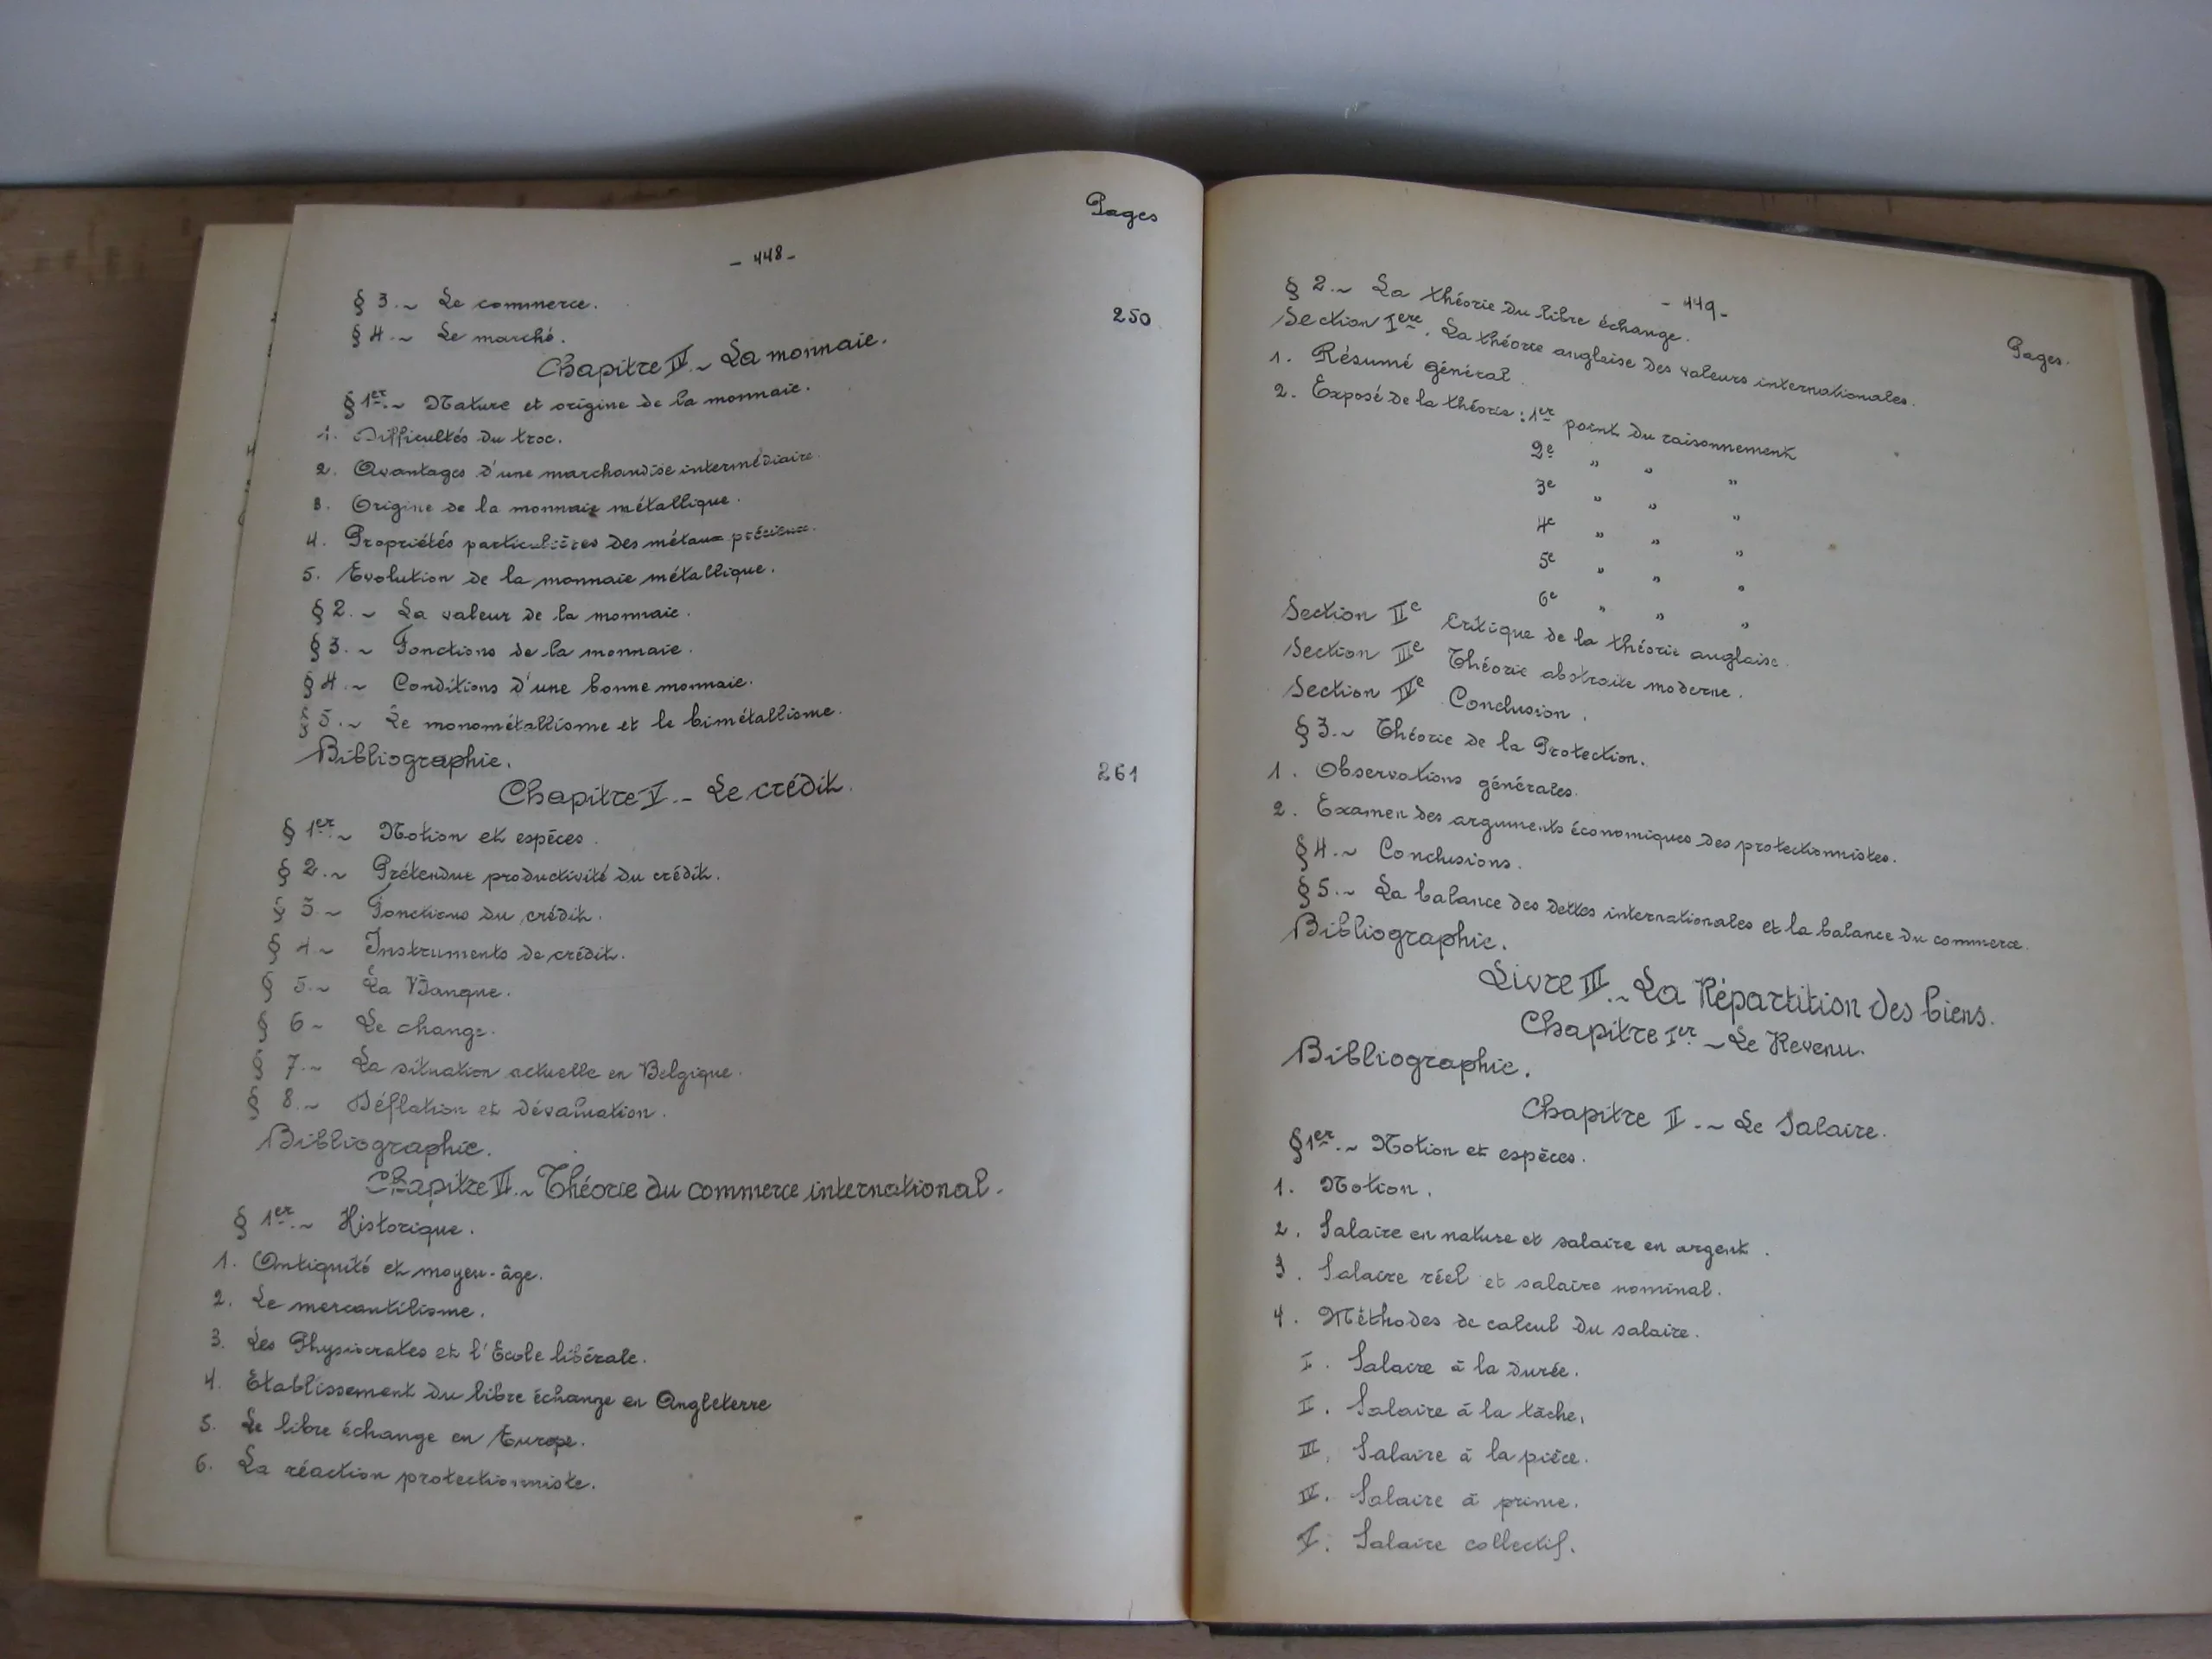 Pages
- 448 -
§ 3. ~ Le commerce.
§ 4. ~ Le marché. 250
Chapitre IV. ~ La monnaie.
§ 1er. ~ Nature et origine de la monnaie.
1. Difficultés du troc.
2. Avantages d'une marchandise intermédiaire.
3. Origine de la monnaie métallique.
4. Propriétés particulières des métaux précieux.
5. Evolution de la monnaie métallique.
§ 2. ~ La valeur de la monnaie.
§ 3. ~ Fonctions de la monnaie.
§ 4. ~ Conditions d'une bonne monnaie.
§ 5. ~ Le monométallisme et le bimétallisme.
Bibliographie.
Chapitre V. - Le crédit. 261
§ 1er. ~ Notion et espèces.
§ 2. ~ Prétendue productivité du crédit.
§ 3. ~ Fonctions du crédit.
§ 4. ~ Instruments de crédit.
§ 5. ~ La Banque.
§ 6 ~ Le change.
§ 7. ~ La situation actuelle en Belgique.
§ 8. ~ Déflation et dévaluation.
Bibliographie.
Chapitre VI. ~ Théorie du commerce international.
§ 1er. ~ Historique.
1. Antiquité et moyen-âge.
2. Le mercantilisme.
3. Les Physiocrates et l'Ecole libérale.
4. Etablissement du libre échange en Angleterre
5. Le libre échange en Europe.
6. La réaction protectionniste.
- 449 -
Pages.
§ 2. ~ La théorie du libre échange.
Section Iere. La théorie anglaise des valeurs internationales.
1. Résumé général.
2. Exposé de la théorie : 1er point du raisonnement
2e " " "
3e " " "
4e " " "
5e " " "
6e " " "
Section IIe Critique de la théorie anglaise.
Section IIIe Théorie abstraite moderne.
Section IVe Conclusion.
§ 3. ~ Théorie de la Protection.
1. Observations générales.
2. Examen des arguments économiques des protectionnistes.
§ 4. ~ Conclusions.
§ 5. ~ La balance des dettes internationales et la balance du commerce.
Bibliographie.
Livre III. ~ La Répartition des biens.
Chapitre Ier. ~ Le Revenu.
Bibliographie.
Chapitre II. ~ Le Salaire.
§ 1er. ~ Notion et espèces.
1. Notion.
2. Salaire en nature et salaire en argent.
3. Salaire réel et salaire nominal.
4. Méthodes de calcul du salaire.
I. Salaire à la durée.
II. Salaire à la tâche.
III. Salaire à la pièce.
IV. Salaire à prime.
V. Salaire collectif.